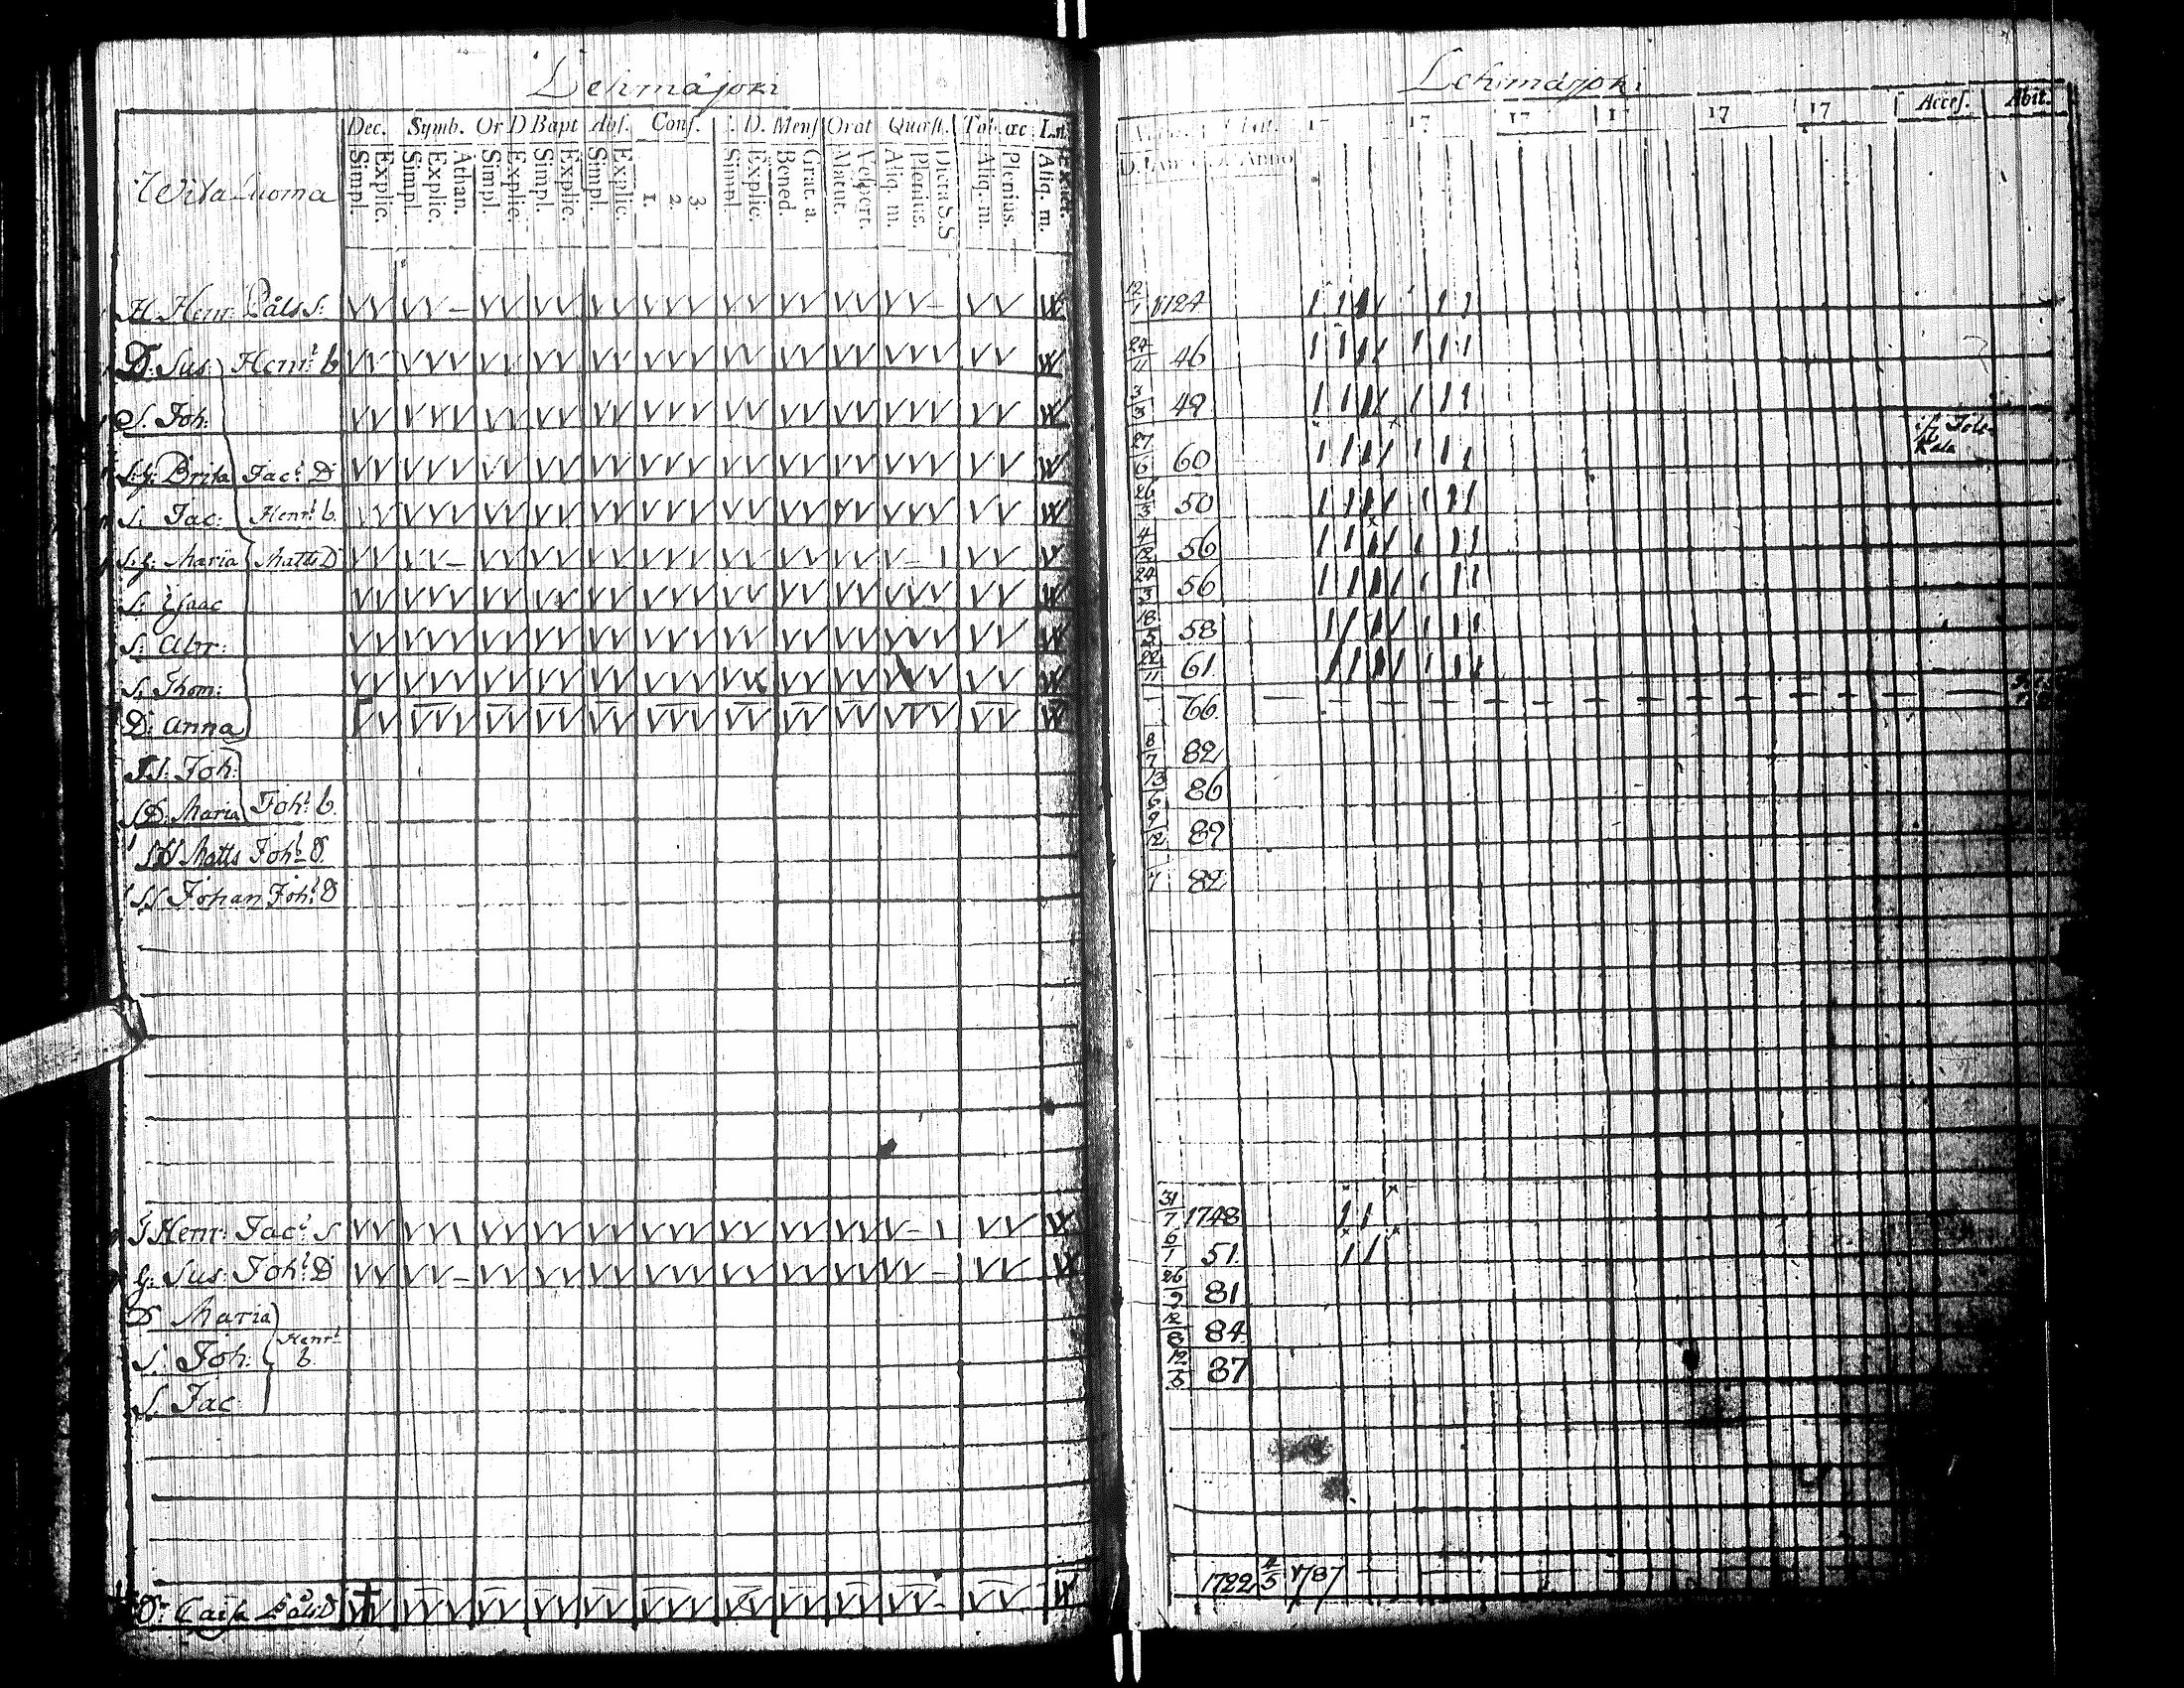 Lehmäjoki
Dec. Symb. Or D Bapt Abs. Conf. D. Mens Orat Quæst. Tab. œc
Simpl. Explic. Simpl. Explic. Athan. Simpl. Explic. Simpl. Explic. Simpl. Explic. 1. 2. 3. Simpl. Explic. Bened. Grat. a. Matut. Vespert. Aliq. m. Plenius. Dicta S.S Aliq. m. Plenius. Aliq. m.
Witaluoma
H Henr: Påls S:
D: Sus: Henr: b
S. Joh:
S:g: Brita Jac: D
S. Jac: Henr: b.
S.g: Maria Matts D
S: Isaac
S: Abr:
S. Thom:
D: Anna
S S: Joh:
S D: Maria Joh: b.
Matts Joh: S.
S S Johan Joh: S
J Henr: Jac: S
g: Sus: Joh: D
D Maria
S: Joh: Henr: b
S. Jac
Caisa Påls D
Lehmäjoki
17 17 17 17 17 17 Acces. Abit.
Anno
12/1 1724
24/11 46
3/3 49
27/6 60
26/3 50
4/2 56
24/3 56
18/5 58
22/11 61
66.
8/7 82
13/6 86
9/12 89
7 82
31/7 1748
6/1 51.
26/9 81
12/8 84
12/5 87
1722 4/5 1787